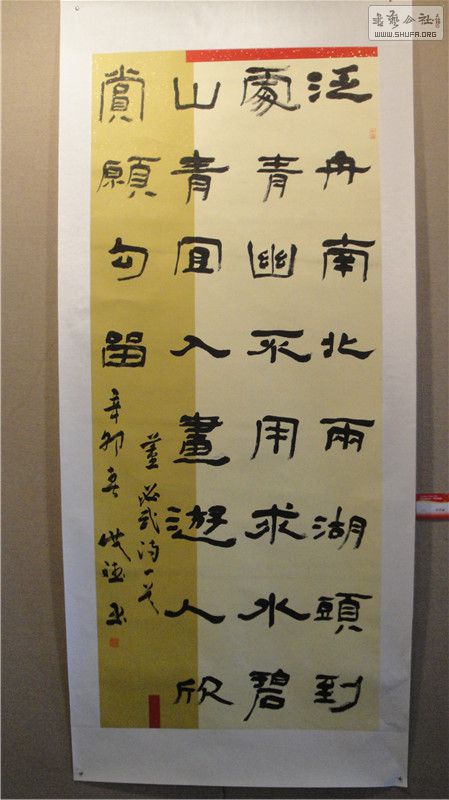 泛舟南北兩湖頭到
處青幽不用求水碧
山青宜入畫遊人欣
賞願勾留
董必武詩一首
辛卯春
书艺公社
WWW.SHUFA.ORG